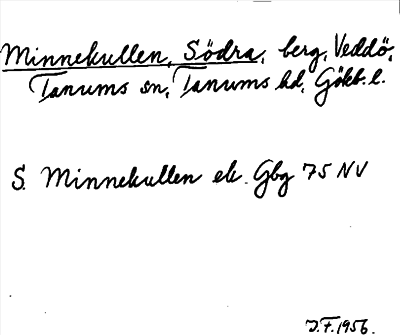 Minnekullen, Södra, berg, Veddö,
Tanums sn, Tanums hd, Göbb. l.
S. Minnekullen ek. Gbg 75 NV
J.F. 1956.